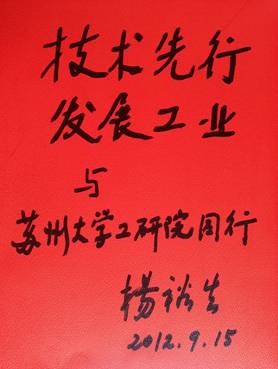 技术先行
发展工业
与
苏州大学工研院同行
杨裕生
2012.9.15